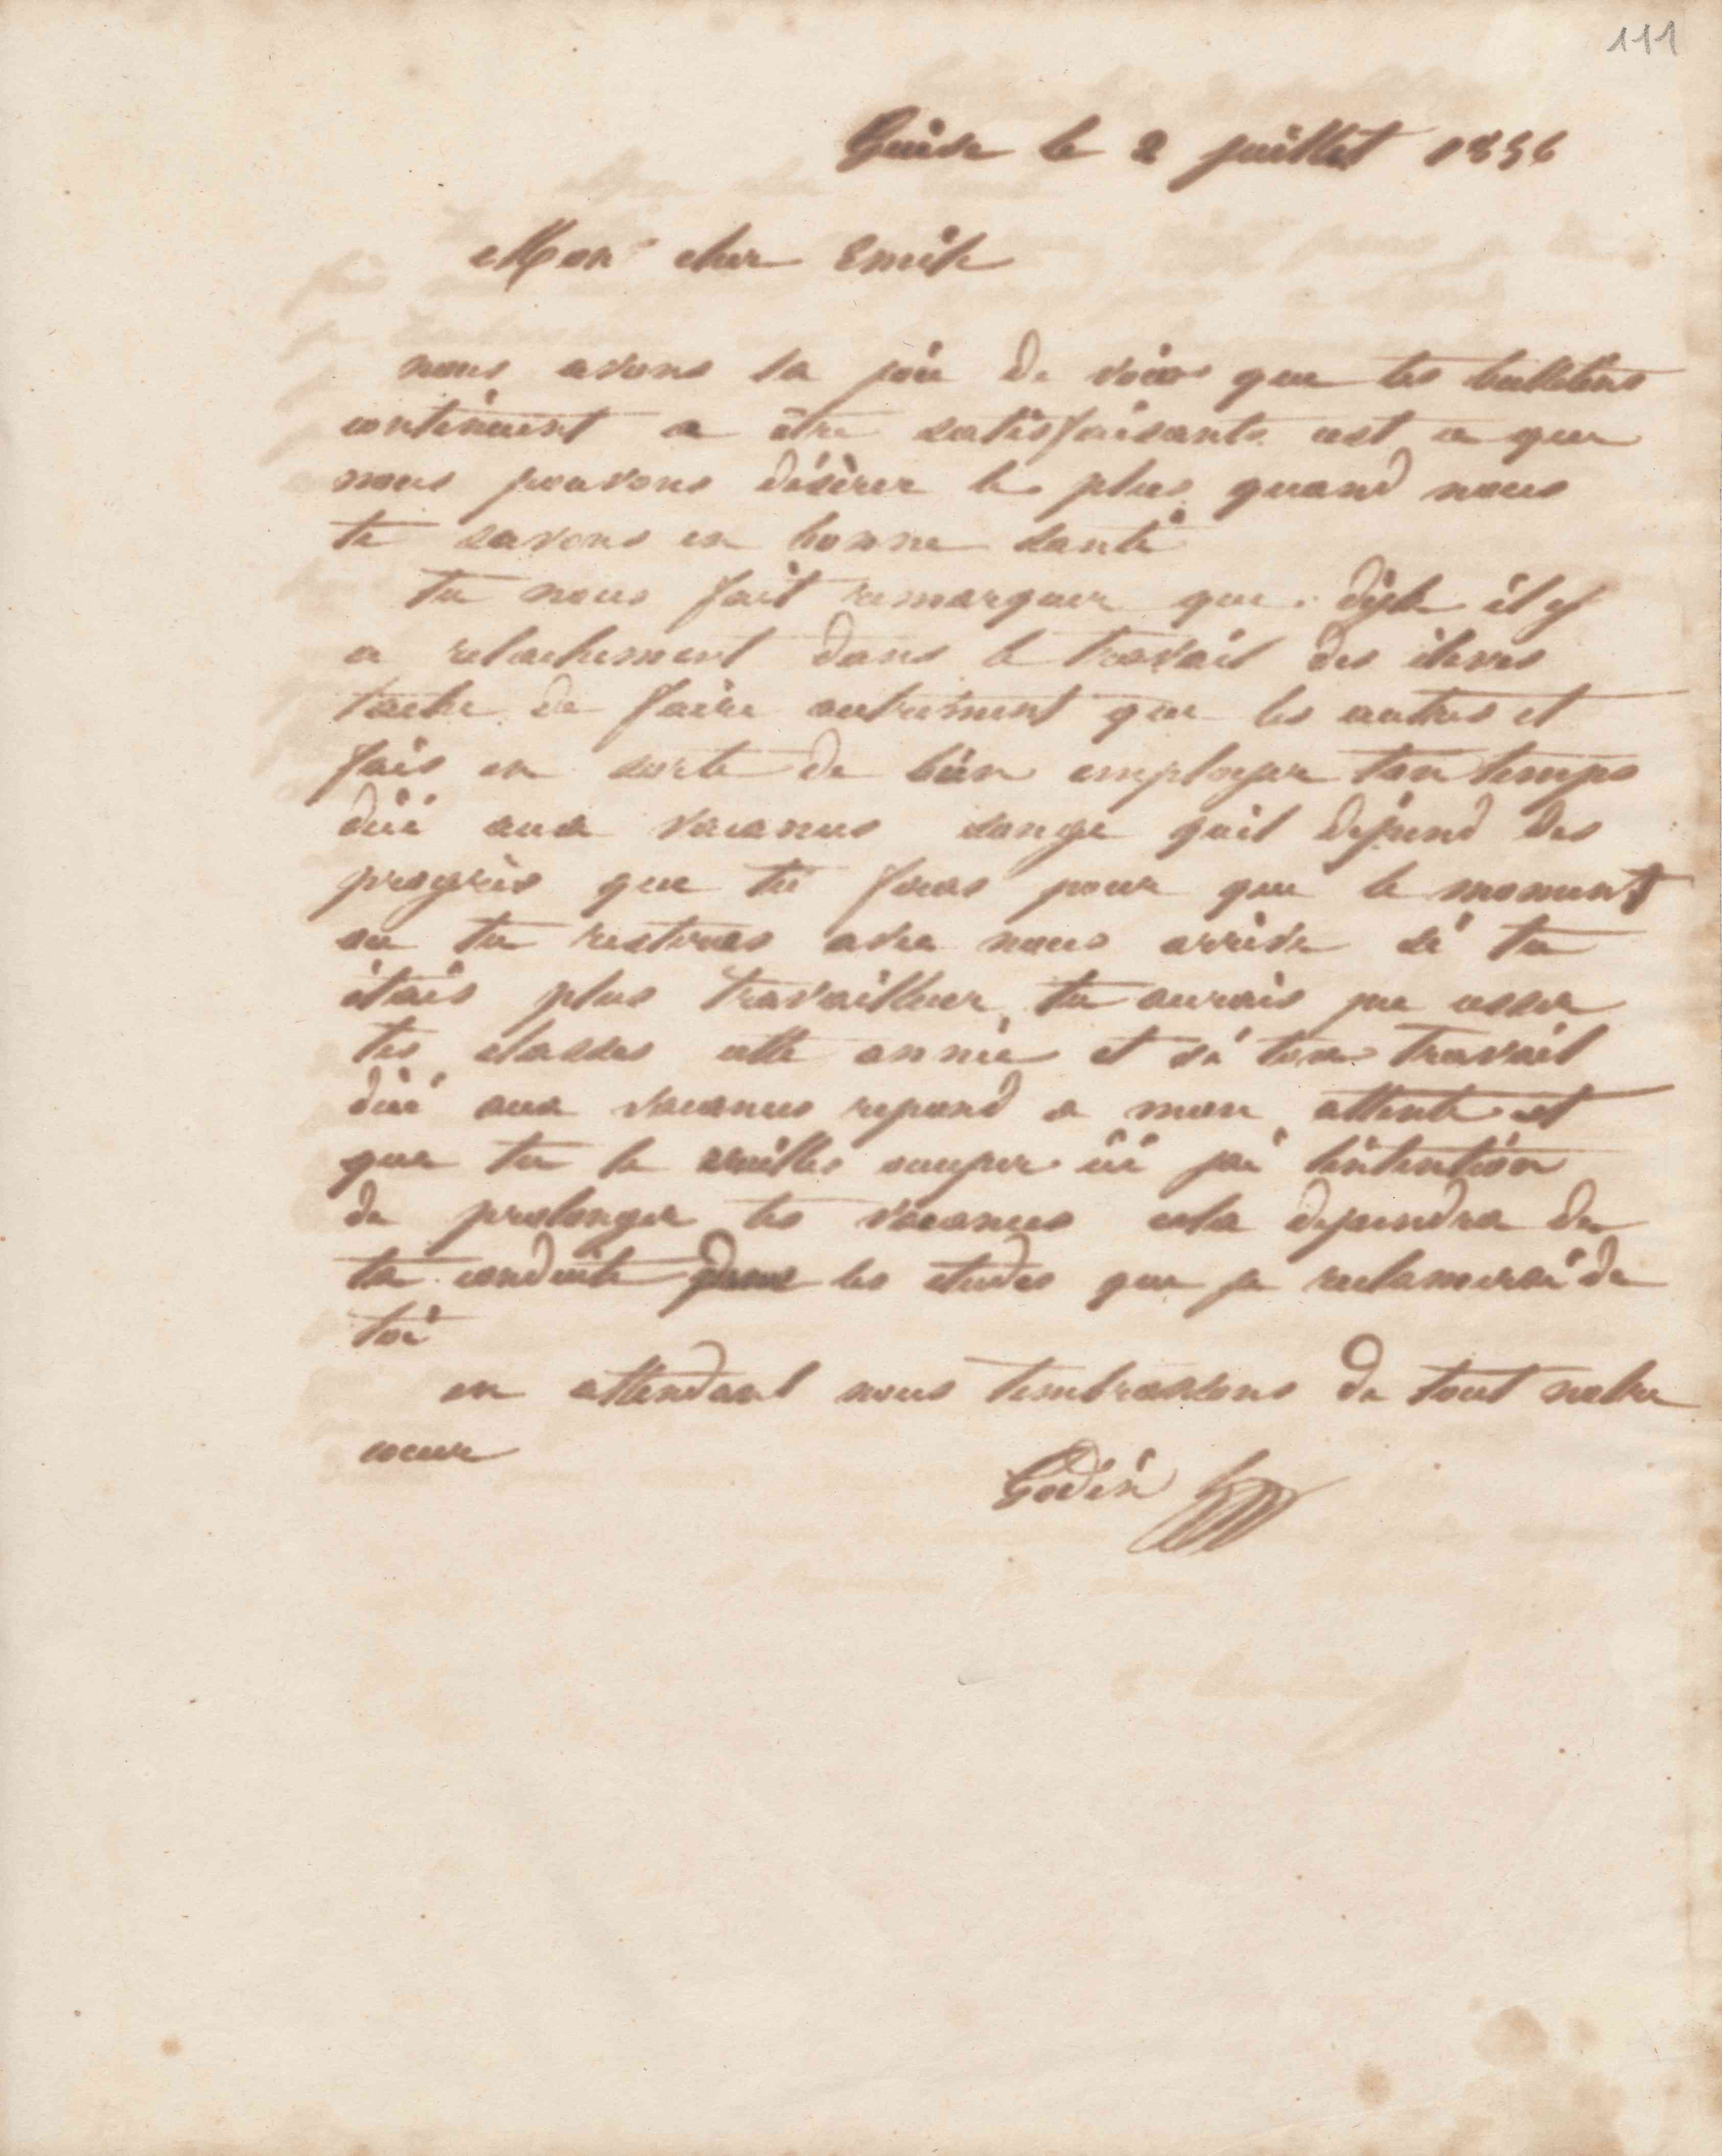 111
Guise le 2 juillet 1856
Mon cher Emile
nous avons la joie de voir que tes bulletins
continuent a être satisfaisants cest ce que
nous pouvons désirer le plus quand nous
te savons en bonne santé
tu nous fait remarquer que déja il y
a relachement dans le travail des éleves
tache de faire autrement que les autres et
fais en sorte de bien employer ton temps
dici aux vacances songe quil depend des
progrès que tu feras pour que le moment
ou tu resteras avec nous arrive si tu
étais plus travailleur tu aurais pu cesser
tes classes cette année et si ton travail
dici aux vacances repond a mon attente et
que tu te veuilles occuper ici jai lintention
de prolonger tes vacances cela dependra de
ta conduite les etudes que je reclamerai de
toi
en attendant nous tembrassons de tout notre
coeur
Godin